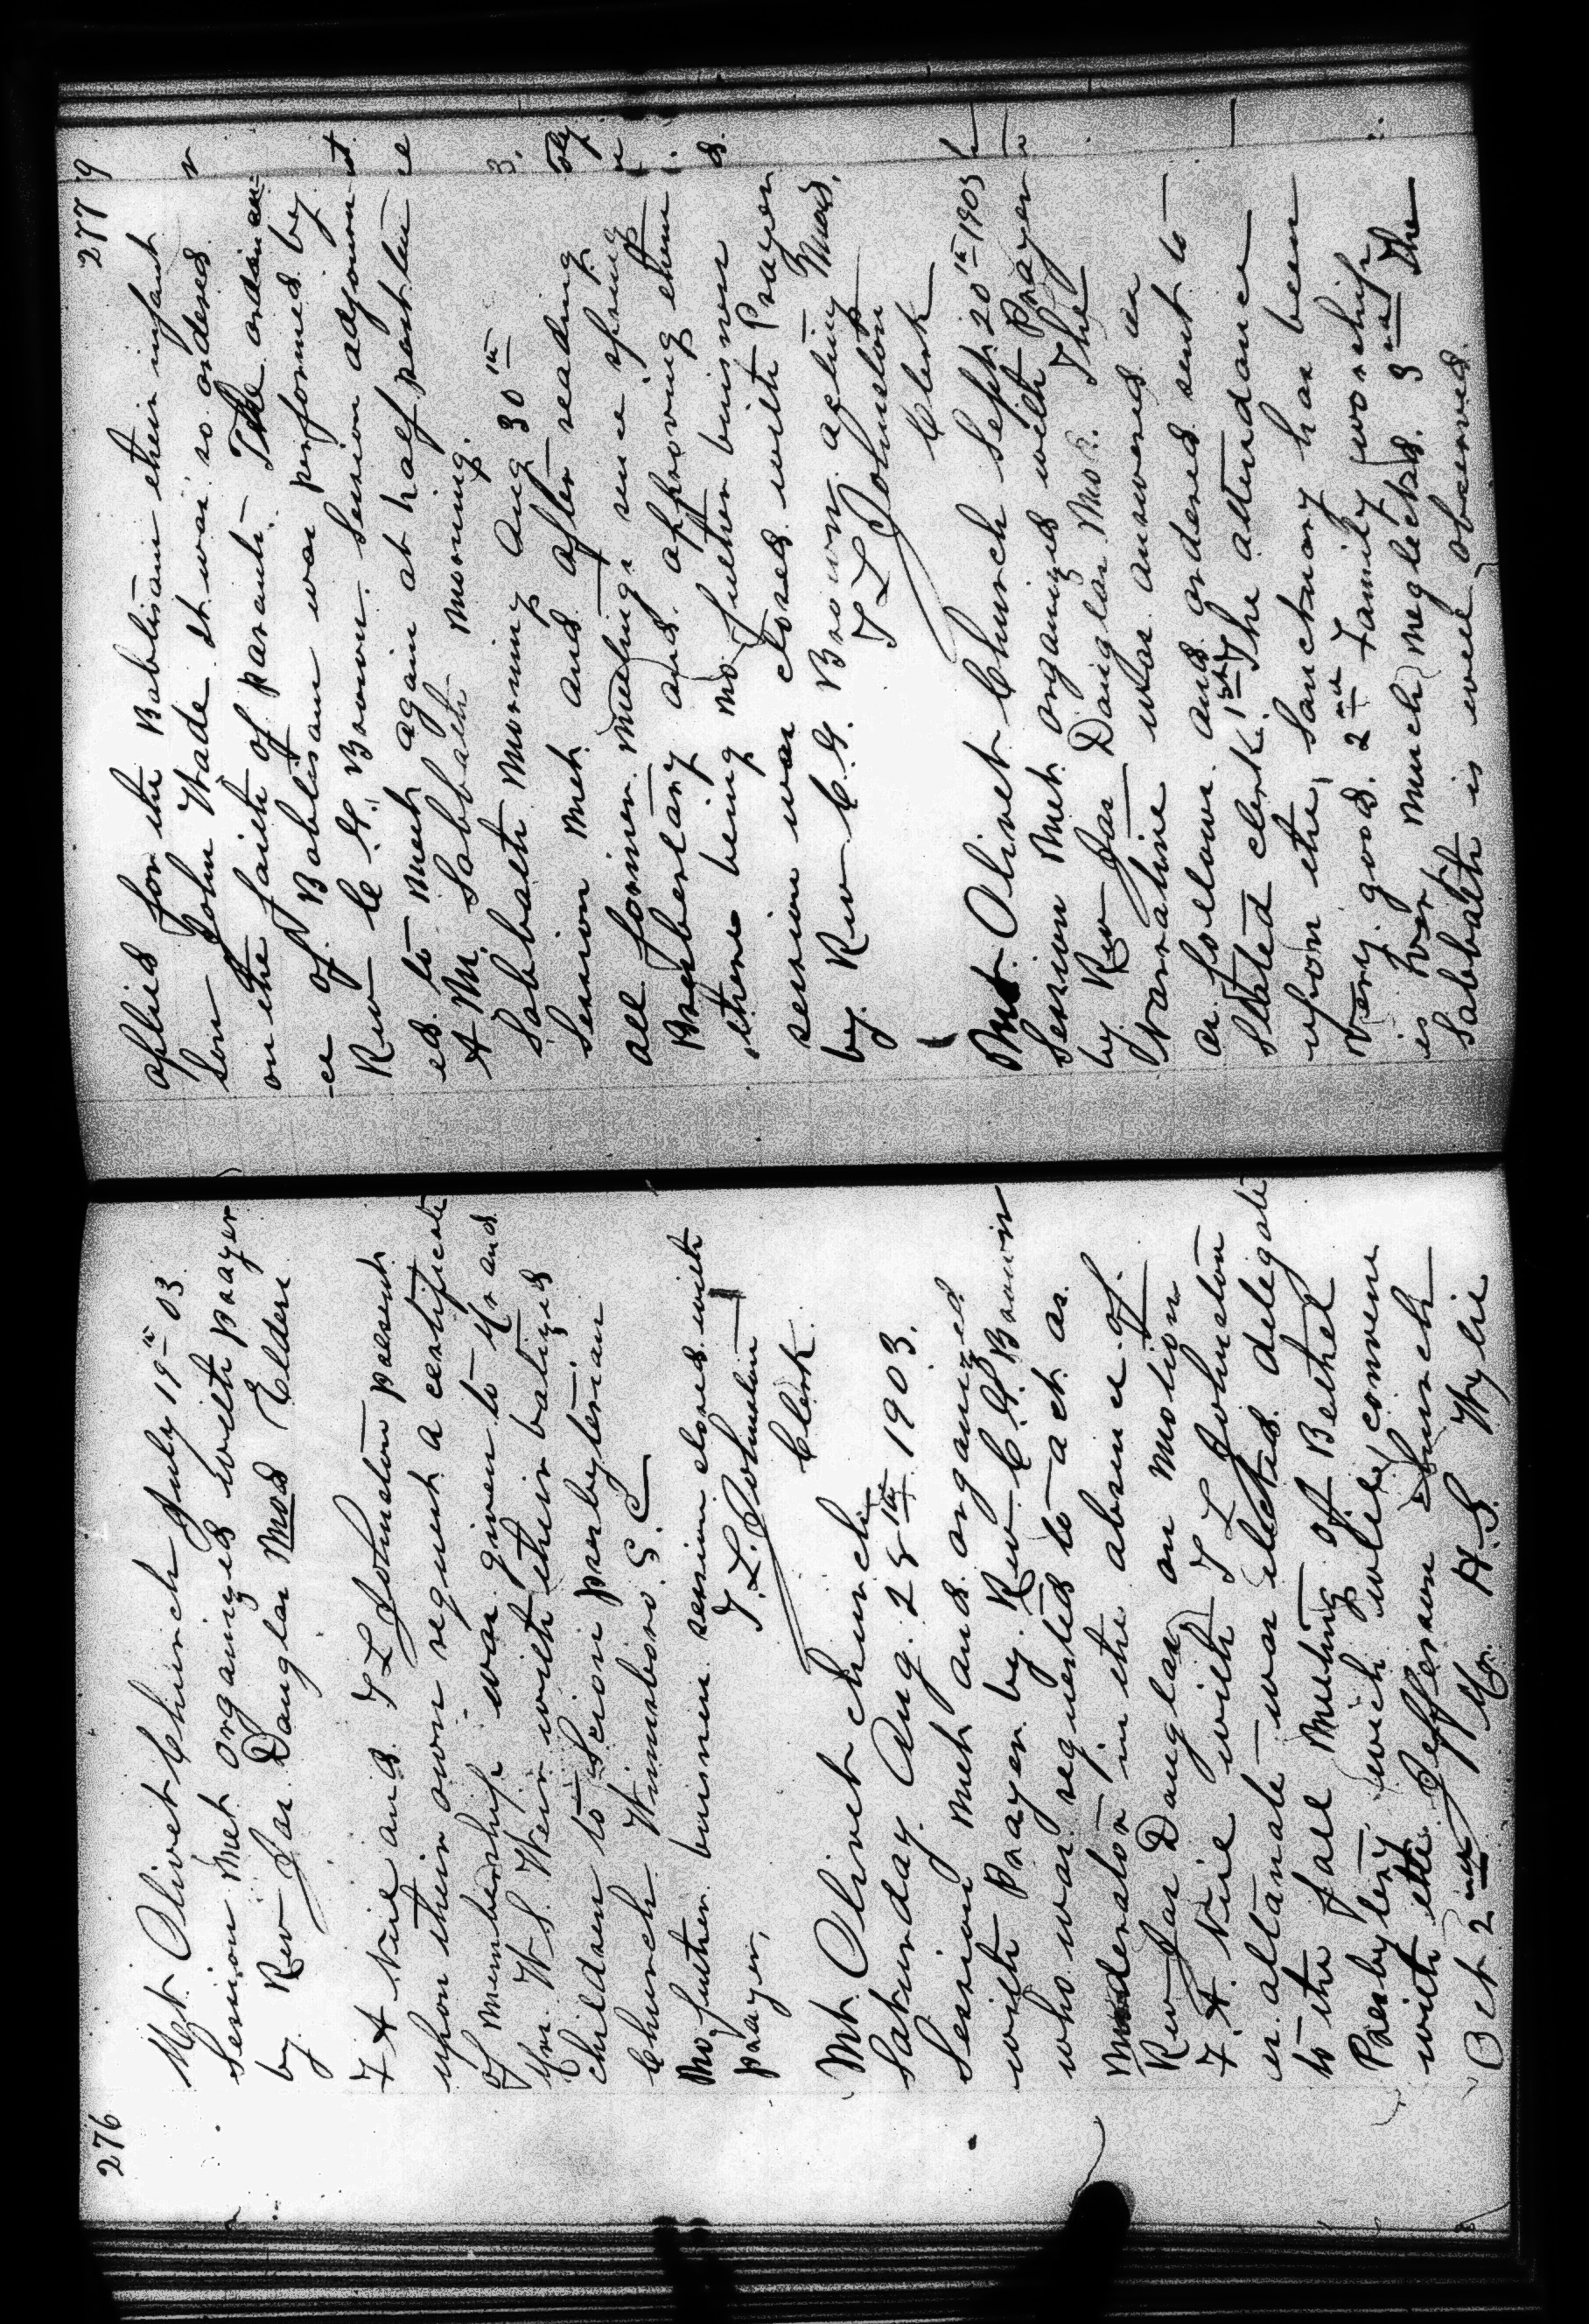 276
Mt. Olivet Church July 19th 03
Session Met organized with prayer
by Rev Jas Douglas Mod Elders
F A Neil and T L Johnston present
upon their own request a certificate
of membership was given to Mr and
Mrs. W S. Weir with their batized
children to Scion presbyterian
Church Winnsboro S. C
No futher business session closed with
prayer,
T. L. Johnston
Clerk.
Mt Olivet church
Saturday Aug. 28th 1903.
Session met and organized
with Prayer by Rev C. G. Brown
who was requested to act as
Moderator in the absence of
Rev Jas Douglas, on motion
F. A. Neil with T L Johnston
as altanate was elected delegate
to the fall Meeting of Bethel
Presbytery wich will convene
with the Jefferson Church
Oct 2nd Mr. H. S. Wylie
277
aplied for the Babtism their infant
Son John Wade it was so ordered
on the faith of parants. The ordinan-
ce of Babtism was performed by
Rev C G. Brown. Session adjourn
ed to meet again at half past ten
A M. Sabbath Morning.
Sabbath Morning Aug 30th
Session met and after reading
all former meetings since spring
Presbertary and approving them
there being no futher business
session was closed with Prayer
by Rev C. G. Brown acting Mod.
T L Johnston
Clerk
Mt Olivet Church Sept 20th 1903
Session Met organized with Prayer
by Rev Jas Douglas Mod. The
Narative was answered in
as follows and ordered sent to
Stated clerk. 1st The attendance
upon the Sanctuary has been
very good. 2nd Family worship
is very much neglected. 3rd The
Sabbath is well observed.